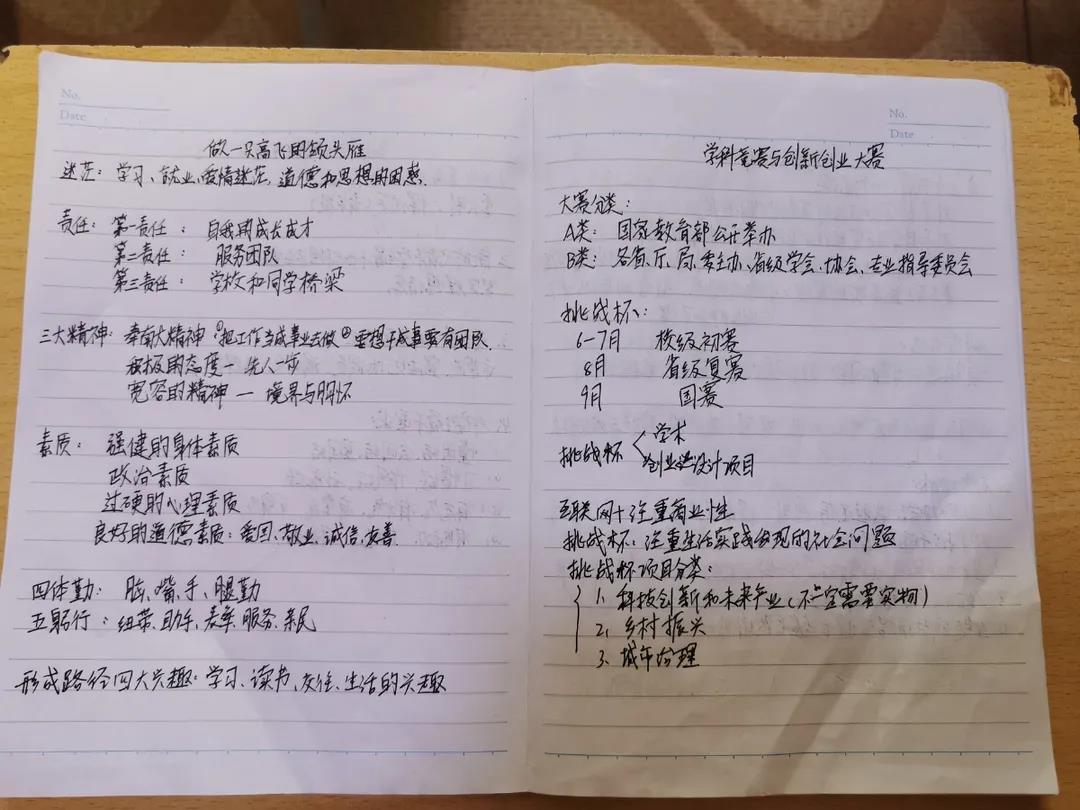 No.
Date
做一只高飞的领头雁
迷茫：学习、就业、爱情迷茫，道德和思想的困惑.
责任：第一责任：自我的成长成才
第二责任：服务团队
第三责任：学校和同学桥梁
三大精神：奉献大精神：①把工作当成事业去做②要想干成事要有团队.
积极的态度一先人一步
宽容的精神一境界与胸怀
素质：强健的身体素质
政治素质
过硬的心理素质
良好的道德素质：爱国、敬业、诚信、友善.
四体勤：脑、嘴、手、腿勤
五躬行：纽带、助手、表率、服务、亲民
形成路径四大兴趣：学习、读书、交往、生活的兴趣
No.
Date
学科竞赛与创新创业大赛
大赛分类：
A类：国家教育部公开举办
B类：各省、厅、局、委主办、省级学会、协会、专业指导委员会
挑战杯：
6-7月 校级初赛
8月 省级复赛
9月 国赛
挑战杯 学术
创业设计项目
互联网+注重商业性
挑战杯：注重生活实践发现的社会问题
挑战杯项目分类：
1、科技创新和未来产业(不一定需要实物)
2、乡村振兴
3、城市治理